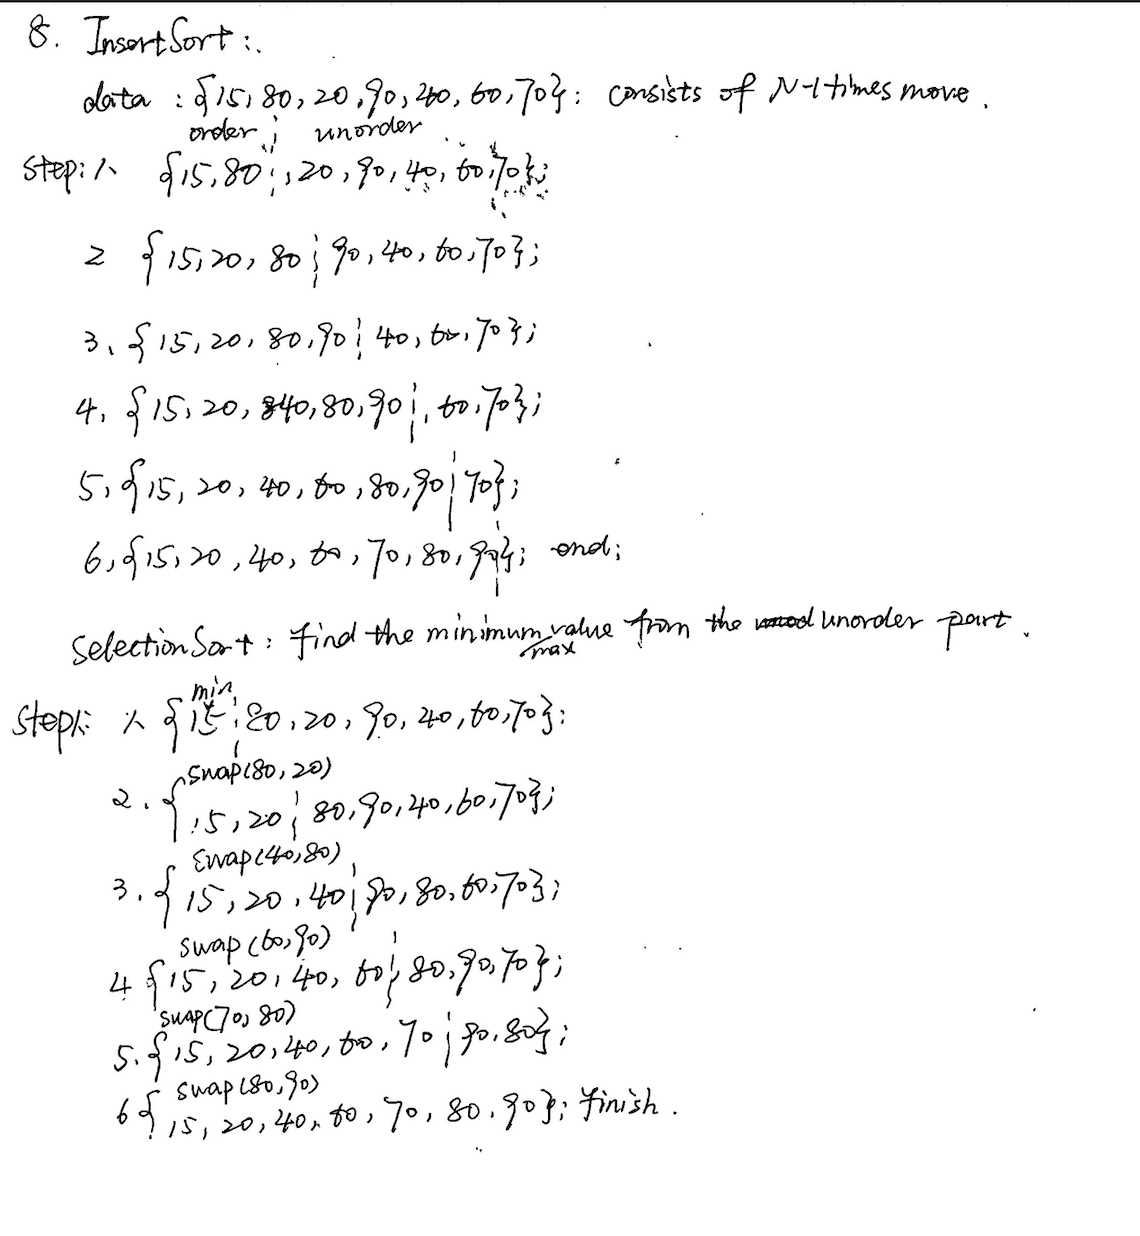 8. InsertSort :.
data : {15, 80, 20, 90, 40, 60, 70}: consists of N-1 times move.
order ¦ unorder
Step: 1、 {15, 80 ¦, 20, 90, 40, 60, 70};
2 {15, 20, 80 ¦ 90, 40, 60, 70};
3、{15, 20, 80, 90 ¦ 40, 60, 70};
4, {15, 20, 40, 80, 90 ¦, 60, 70};
5, {15, 20, 40, 60, 80, 90 ¦ 70};
6, {15, 20, 40, 60, 70, 80, 90}; end;
SelectionSort : find the minimum value from the unorder part.
max
min
Step: 1、 {15 ¦ 80, 20, 90, 40, 60, 70}:
swap(80, 20)
2. {15, 20 ¦ 80, 90, 40, 60, 70};
Swap(40, 80)
3. {15, 20, 40 ¦ 90, 80, 60, 70};
swap (60, 90)
4 {15, 20, 40, 60 ¦ 80, 90, 70};
swap(70, 80)
5. {15, 20, 40, 60, 70 ¦ 90, 80};
swap(80, 90)
6 {15, 20, 40, 60, 70, 80, 90}; finish.